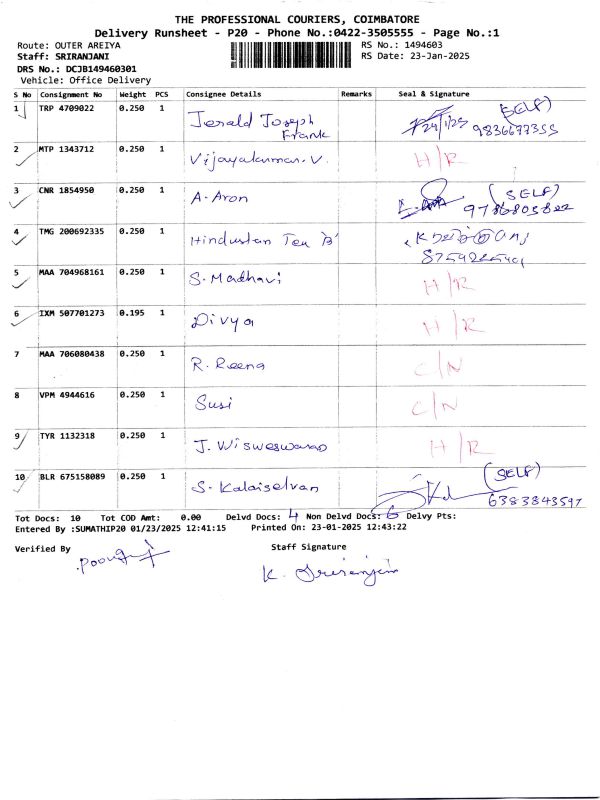 THE PROFESSIONAL COURIERS, COIMBATORE
Delivery Runsheet - P20 - Phone No.:0422-3505555 - Page No.:1
Route: OUTER AREIYA RS No.: 1494603
Staff: SRIRANJANI RS Date: 23-Jan-2025
DRS No.: DCJB149460301
Vehicle: Office Delivery
S No Consignment No Weight PCS Consignee Details Remarks Seal & Signature
1 TRP 4709022 0.250 1 Jerald Joseph Frank 24/1/25 (SELF) 9836697355
2 MTP 1343712 0.250 1 Vijayakumar. V. H/R
3 CNR 1854950 0.250 1 A. Aron (SELF) 9786803822
4 TMG 200692335 0.250 1 Hindustan Tea 'B'
5 MAA 704968161 0.250 1 S. Madhavi H/R
6 IXM 507701273 0.195 1 Divya H/R
7 MAA 706080438 0.250 1 R. Reena C/N
8 VPM 4944616 0.250 1 Susi C/N
9 TYR 1132318 0.250 1 J. Wisweswaran H/R
10 BLR 675158089 0.250 1 S. Kalaiselvan (SELF) 6383843597
Tot Docs: 10 Tot COD Amt: 0.00 Delvd Docs: 4 Non Delvd Docs: 6 Delvy Pts:
Entered By :SUMATHIP20 01/23/2025 12:41:15 Printed On: 23-01-2025 12:43:22
Verified By Staff Signature
K. Sriranjani